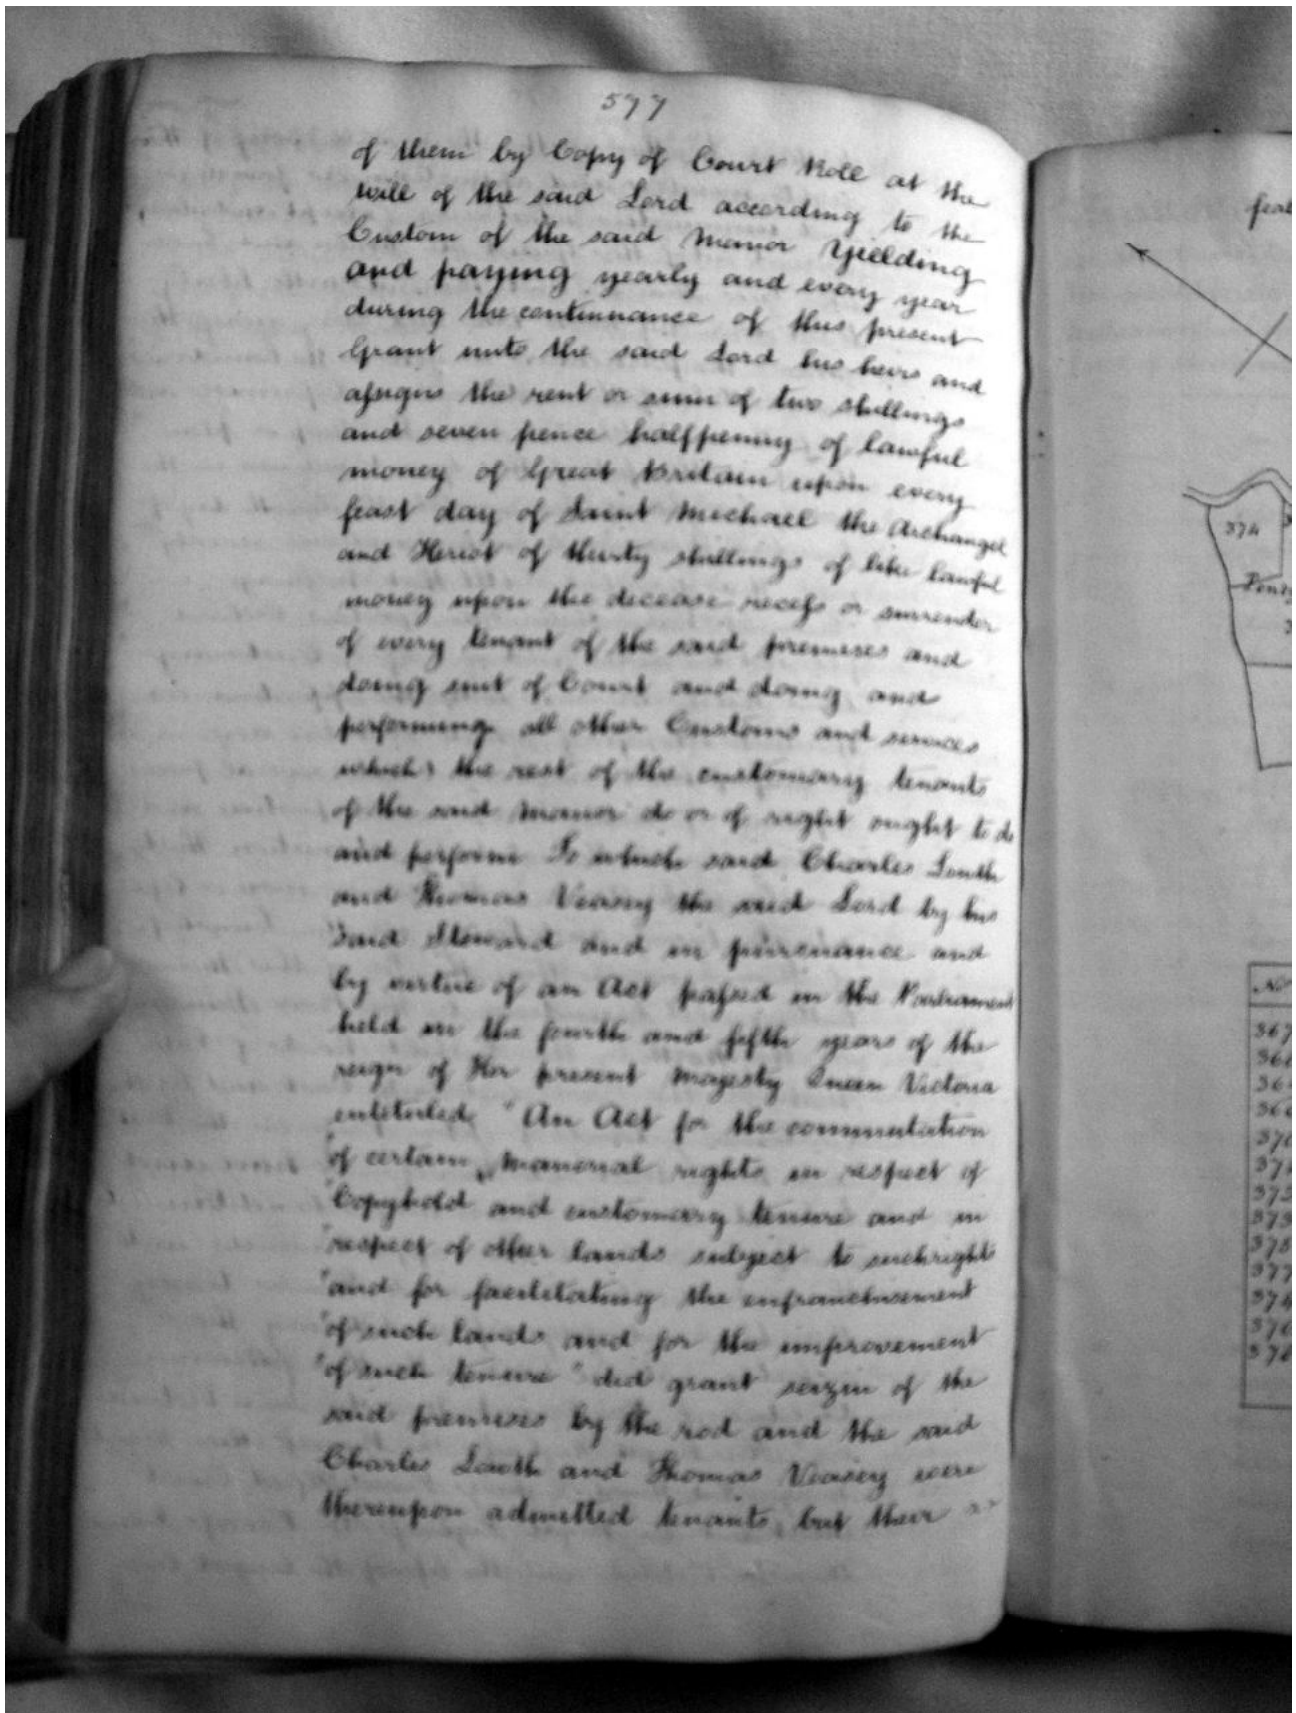 577
of them by Copy of Court Roll at the
will of the said Lord according to the
Custom of the said Manor Yielding
and paying yearly and every year
during the continuance of this present
Grant unto the said Lord his heirs and
assigns the rent or sum of two shillings
and seven pence halfpenny of lawful
money of Great Britain upon every
feast day of Saint Michael the Archangel
and Heriot of thirty shillings of like lawful
money upon the decease recess or surrender
of every tenant of the said premises and
doing suit of Court and doing and
performing all other Customs and services
which the rest of the customary tenants
of the said Manor do or of right ought to do
and perform To which said Charles Louth
and Thomas Veasey the said Lord by his
said Steward and in pursuance and
by virtue of an Act passed in the Parliament
held in the fourth and fifth years of the
reign of Her present Majesty Queen Victoria
intituled "An Act for the commutation
"of certain Manorial rights in respect of
"Copyhold and customary tenure and in
"respect of other lands subject to such rights
"and for facilitating the enfranchisement
"of such lands and for the improvement
"of such tenure" did grant seizin of the
said premises by the rod and the said
Charles Louth and Thomas Veasey were
thereupon admitted tenants but their
374
No
367
370
377